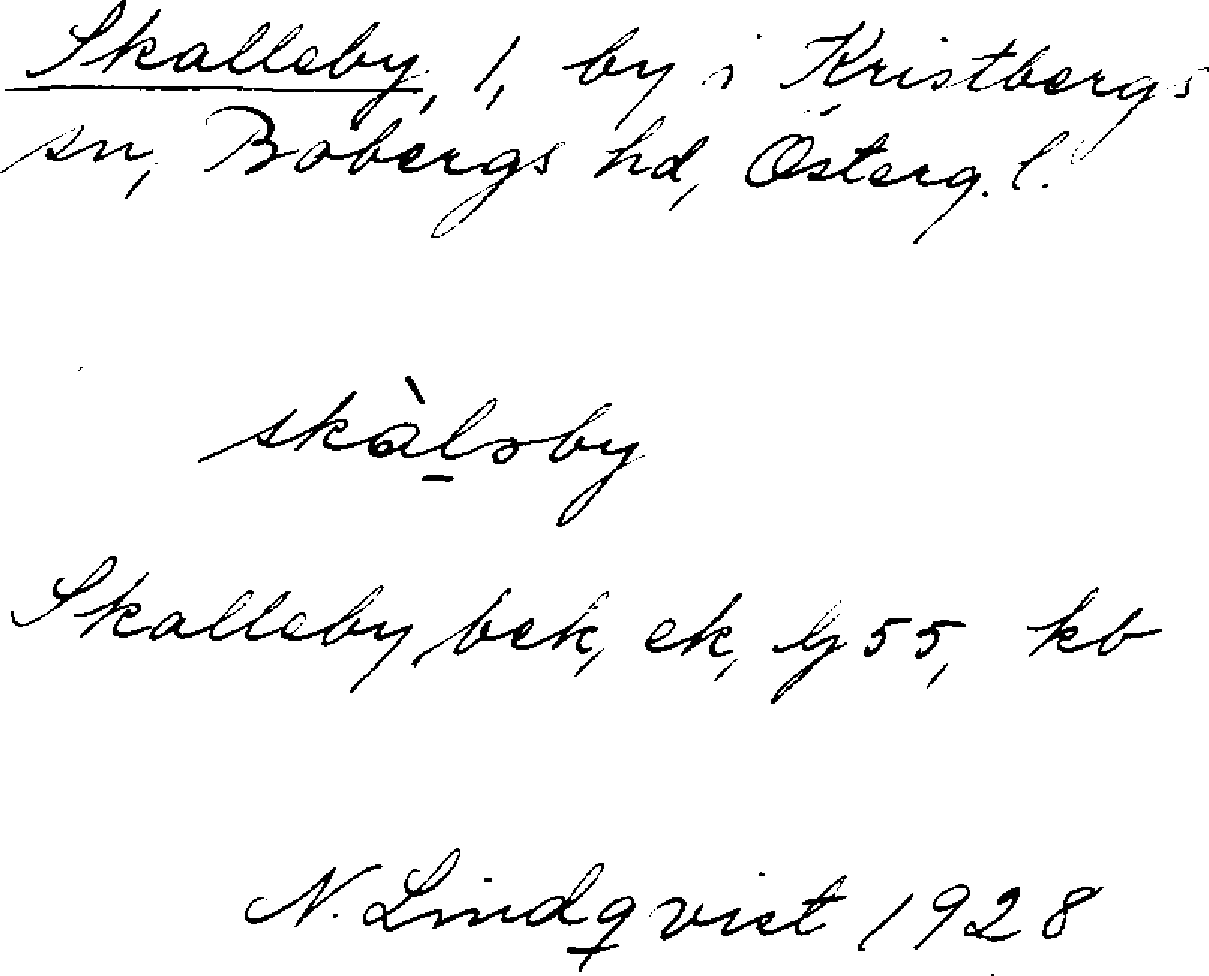 Skalleby, 1, by i Kristbergs
sn, Bobergs hd, Österg. l.
skàl̠əby
Skalleby, bek, ek, lj 55, kb
N. Lindqvist 1928